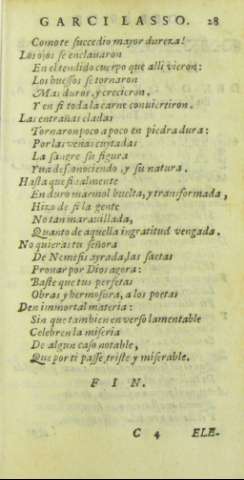 GARCI LASSO. 28
Como te succedio mayor dureza!
Los ojos se enclauaron
En el tendido cuerpo que alli vieron:
Los huessos se tornaron
Mas duros, y crecieron.
Y en si toda la carne conuirtieron.
Las entrañas eladas
Tornaron poco a poco en piedra dura:
Por las venas cuytadas
La sangre su figura
Yua desconociendo, y su natura.
Hasta que finalmente
En duro marmol buelta, y transformada,
Hizo de si la gente
No tan marauillada,
Quanto de aquella ingratitud vengada.
No quieras tu señora
De Nemesis ayrada, las saetas
Prouar por Dios agora:
Baste que tus perfetas
Obras y hermosura, a los poetas
Den immortal materia:
Sin que tambien en verso lamentable
Celebren la miseria
De algun caso notable,
Que por ti passe, triste y miserable.
F I N.
C 4 ELE-